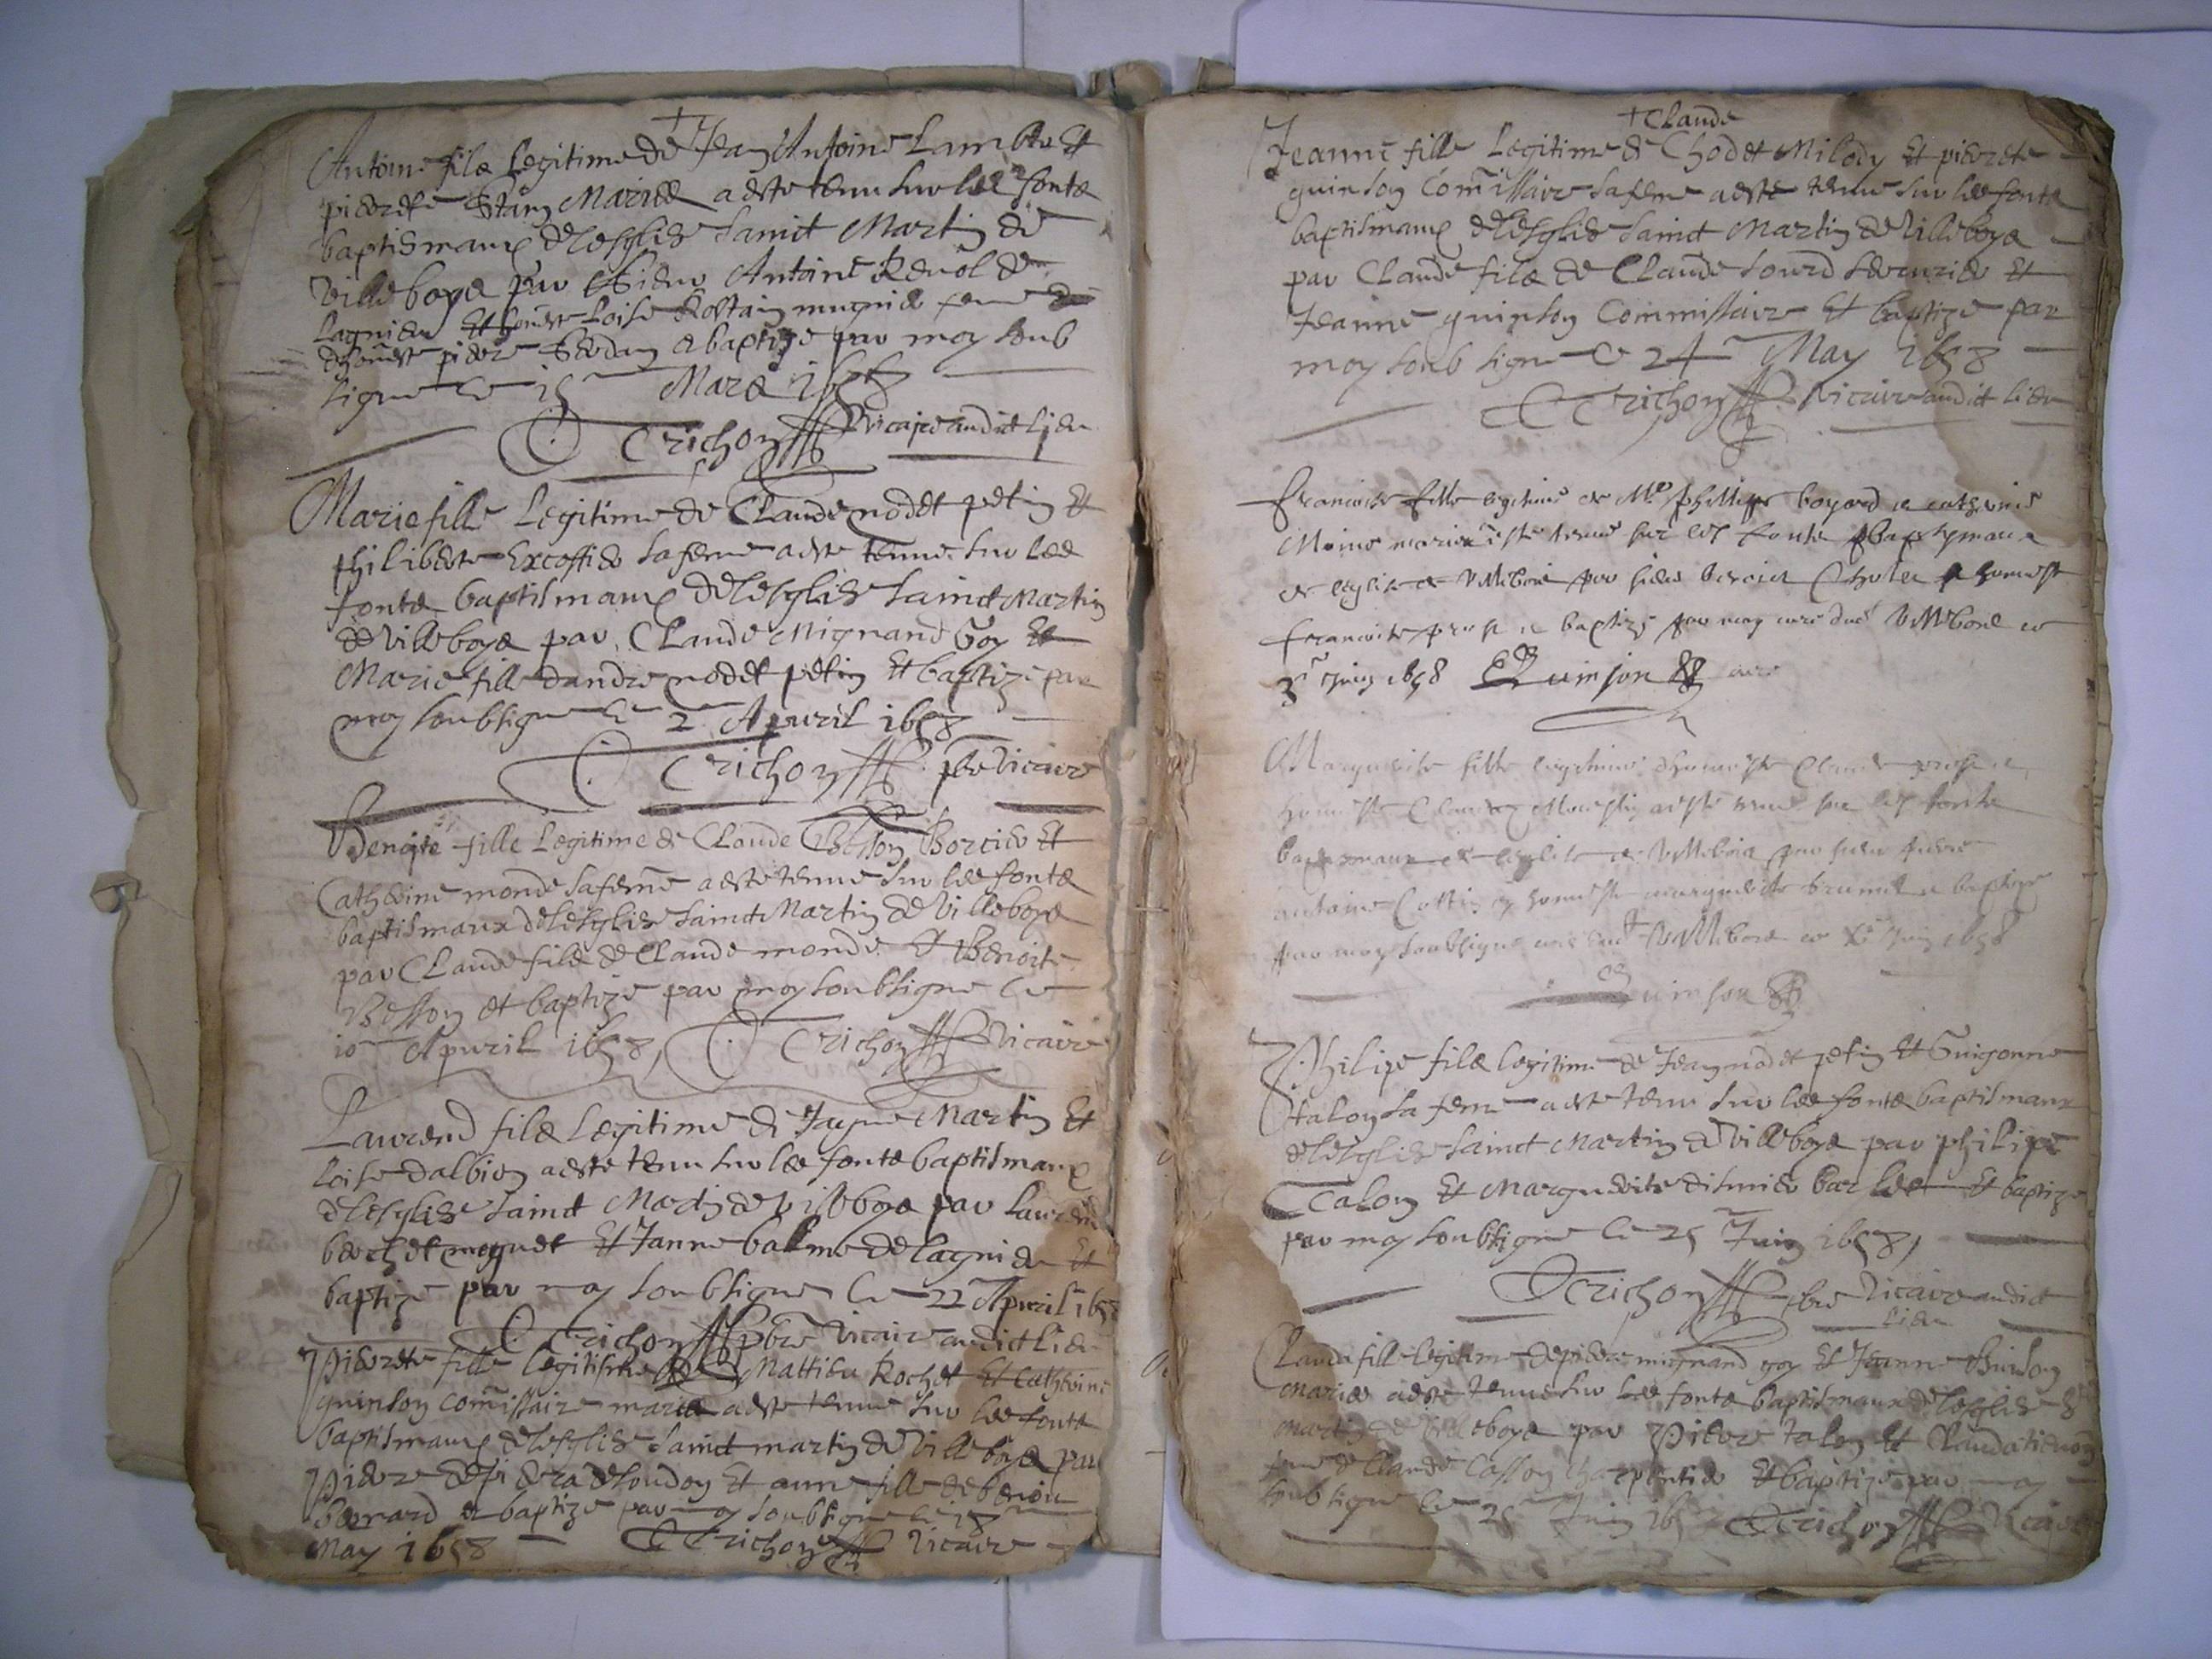 Antoine filz Legitime de Jean Antoine Lambert Et
pierrete Mariez a este tenu sur les fontz
baptismaux de lesglize sainct Martin de
Villeboys par Sieur Antoine Revol de
Lagnieu Et honeste Loise Rostain femme
dhoneste pierre a baptize par moy soub
signe ce 15 Mars 1658
Trichon Vicaire audict Lieu
Marie fille Legitime de Claude nodet petin Et
philiberte Excoffier sa feme a este tenue sur les
fontz baptismaux de lesglize sainct Martin
de Villeboys par Claude Mignand Goy Et
Marie fille dandre nodet petin Et baptize par
moy soubsigne ce 2 Apvril 1658
Trichon pbre Vicaire
Benoite fille Legitime de Claude Besson Borcier Et
Catherine monde sa feme a este tenue sur les fontz
baptismaux de lesglize sainct Martin de Villeboys
par Claude filz de Claude monde Et Benoite
Besson Et baptize par moy soubsigne ce
10 Apvril 1658, Trichon Vicaire
Laurend filz Legitime de Jaque Martin Et
Loise dalbien a este tenu sur les fontz baptismaux
de lesglize sainct Martin de Villeboys par Laurend
berchet Et Janne balme de lagnieu Et
baptize par moy soubsigne ce 22 Apvril 1658
Trichon pbre Vicaire audict Lieu
Pierrete fille legitime de Mattieu Rochet Et Catherine
quinson comissaire mariez a este tenue sur les fontz
baptismaux de lesglize sainct martin de Villeboys par
Pierre de loudon Et anne fille de benoit
bernard Et baptize par moy soubsigne ce
May 1658 Trichon Vicaire
+ Claude
Jeanne fille Legitime de Chodet Milody Et pierrete
quinson Comissaire sa feme a este tenue sur les fontz
baptismaux de lesglize sainct Martin de Villeboys
par Claude filz de Claude sourd Et
Jeanne quinson Commissaire Et baptize par
moy soubsigne ce 24 May 1658
Trichon Vicaire audict lieu
francoise fille legitime de Me phillipe bayard et catherine
Moine mariez este tenue sur les fontz baptismaux
de leglise de Villebois par sieur et honneste
francoise et baptize par moy cure dud Villebois ce
3 Juing 1658 Quinson cure
Marguerite fille legitime dhonneste Claude et
honneste Claudine a este tenue sur les fontz
baptismaux de leglise de Villebois par sieur pierre
antoine Cottin et honneste marguerite brunet et baptize
par moy soubsigne cure dudt Villebois ce Xe Juing 1658
Quinson
Philipe filz legitime de Jean nodet petin Et Guigonne
talon sa feme a este tenu sur les fontz baptismaux
de lesglize sainct Martin de Villeboys par philipe
Talon Et Marguerite Et baptize
par moy soubsigne ce 25 Juin 1658,
Trichon pbre Vicaire audict
lieu
Clauda fille legitime de pierre mignand goy Et Jeanne Quinson
mariez a este tenue sur les fontz baptismaux de lesglize St
martin de Villeboys par Pierre talon Et Clauda
feme de Claude Casson charpentier Et baptize par moy
soubsigne ce 25 Juin 1658 Trichon Vicaire